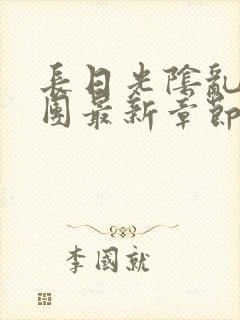 長日光陰亂
團最新章節
李國就